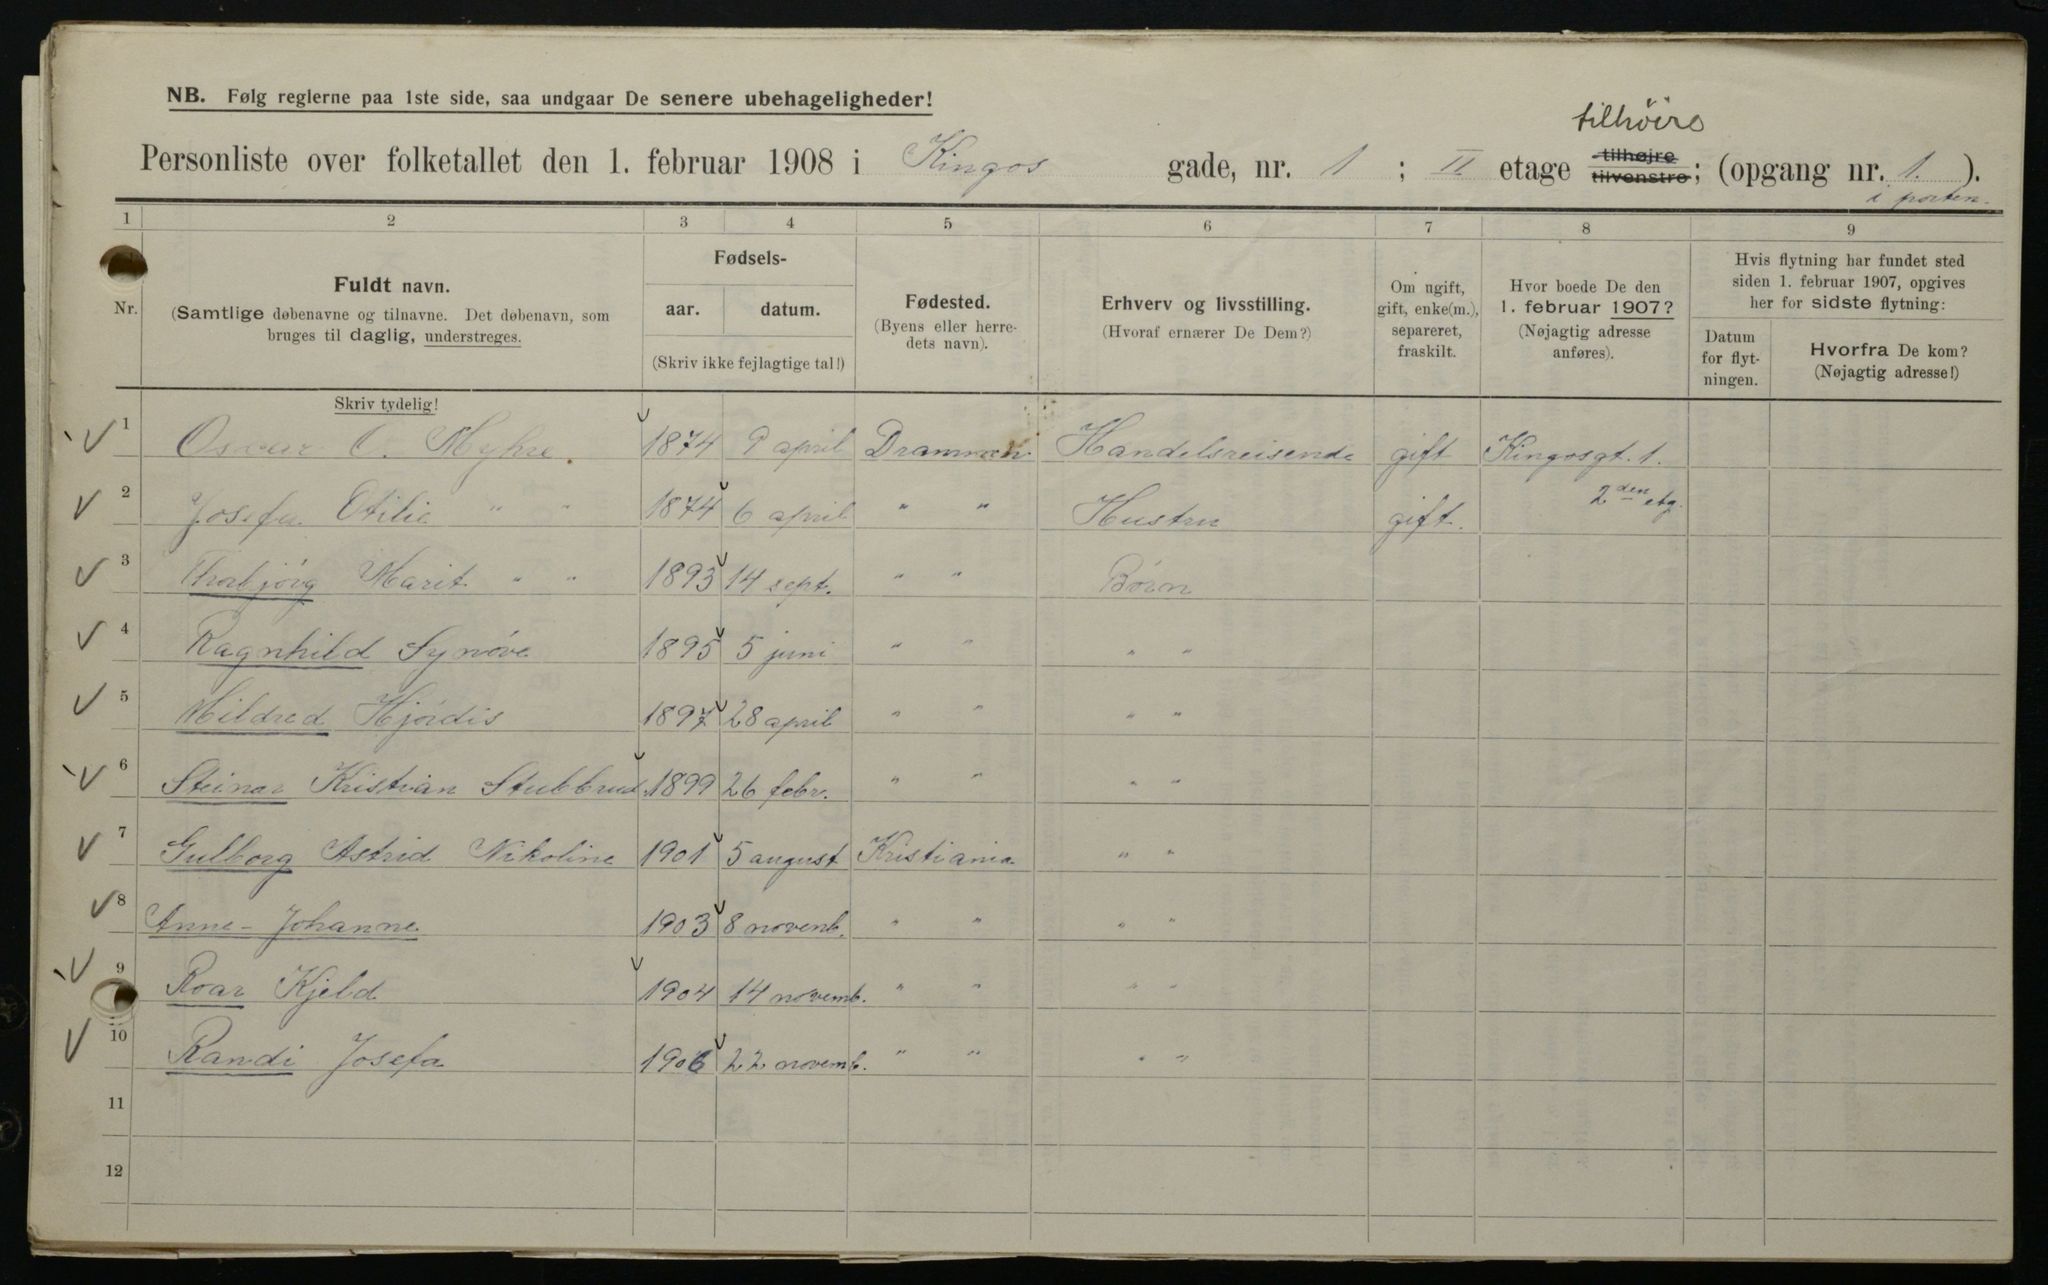 NB. Følg reglerne paa 1ste side, saa undgaar De senere ubehageligheder!
tilhöire
Personliste over folketallet den 1. februar 1908 i Kingos gade, nr. 1 ; II etage tilhøjre tilvenstre; (opgang nr. 1. ).
i porten.
1 2 3 4 5 6 7 8 9
Nr.
Fuldt navn.
(Samtlige døbenavne og tilnavne. Det døbenavn, som
bruges til daglig, understreges.
Skriv tydelig!
Fødsels-
aar. datum.
(Skriv ikke fejlagtige tal!)
Fødested.
(Byens eller herre-
dets navn).
Erhverv og livsstilling.
(Hvoraf ernærer De Dem?)
Om ugift,
gift, enke(m.),
separeret,
fraskilt.
Hvor boede De den
1. februar 1907?
(Nøjagtig adresse
anføres).
Hvis flytning har fundet sted
siden 1. februar 1907, opgives
her for sidste flytning:
Datum
for flyt-
ningen.
Hvorfra De kom?
(Nøjagtig adresse!)
1 Oscar O. Myhre. 1874 9 april Drammen Handelsreisende gift Kingosgt. 1.
2 Josefa Otilie " " 1874 6 april " " Hustru gift. 2den etg.
3 Thorbjörg Marit " " 1893 14 sept. " " Börn
4 Ragnhild Synöve 1895 5 juni " " " "
5 Mildred Hjördis 1897 28 april " " " "
6 Steinar Kristian Stubbrud 1899 26 febr. " " " "
7 Gulborg Astrid Nikoline 1901 5 august Kristiania " "
8 Anne-Johanne 1903 8 novemb. " " " "
9 Roar Kjeld 1904 14 novemb. " " " "
10 Randi Josefa 1906 22 novemb. " " " "
11
12